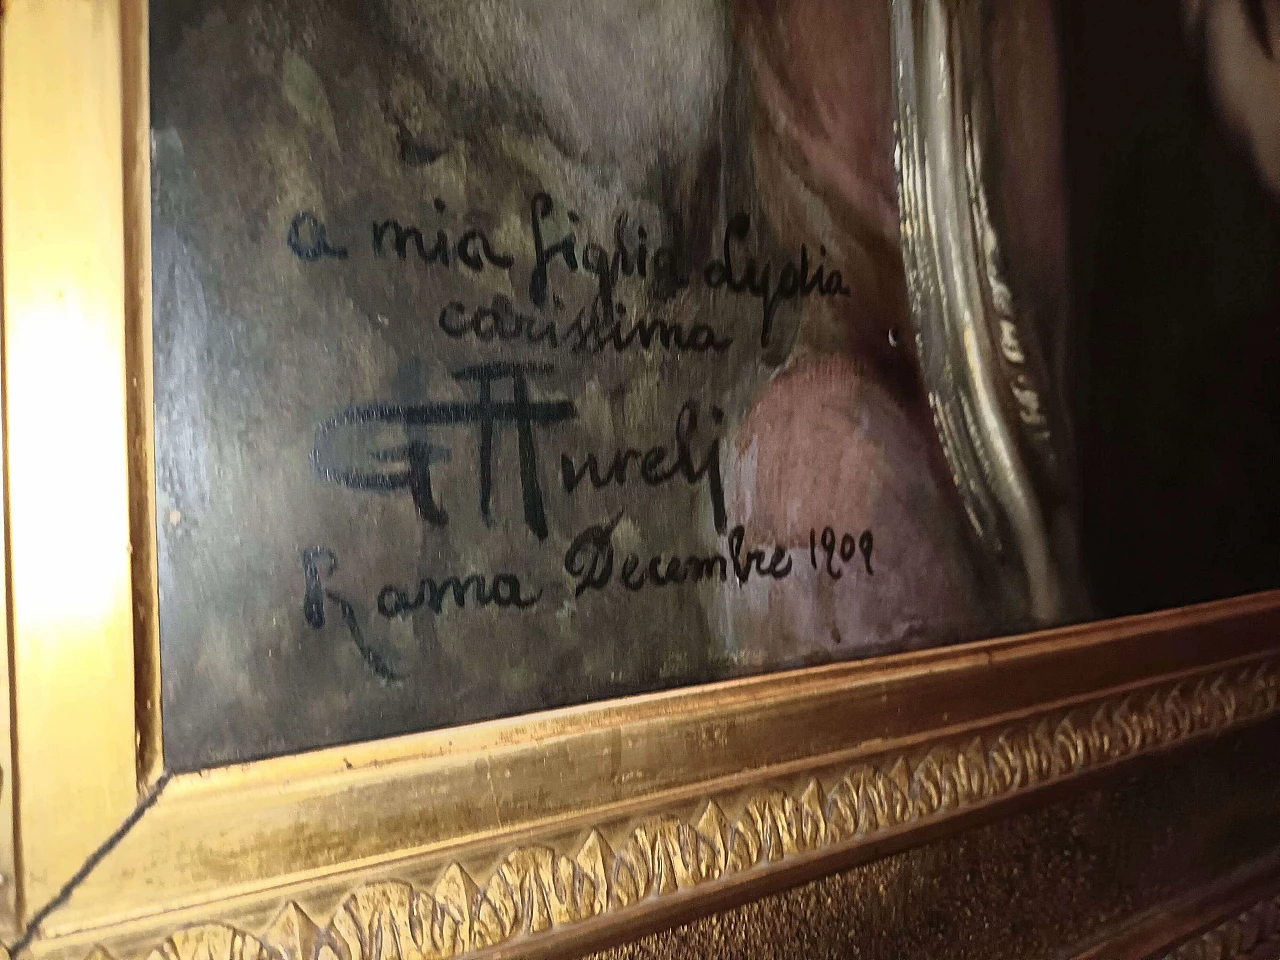 a mia figlia Lydia
carissima
G Aureli
Roma Decembre 1909